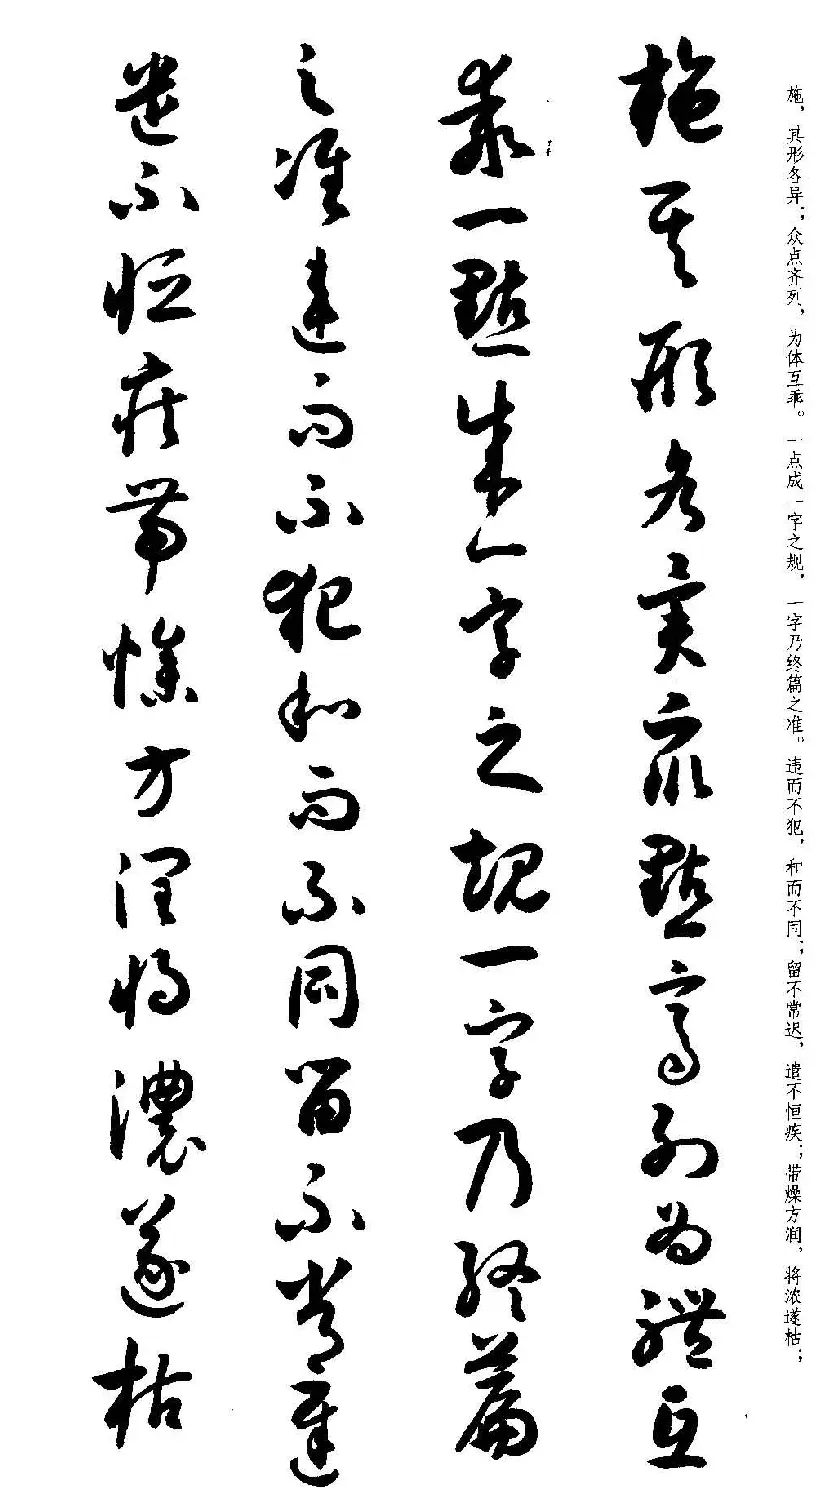 施，其形各异；众点齐列，为体互乖。一点成一字之规，一字乃终篇之准。违而不犯，和而不同；留不常迟，遣不恒疾；带燥方润，将浓遂枯；
施其形各異眾點齊列為體互
乖一點成一字之規一字乃終篇
之准違而不犯和而不同留不常遲
遣不恒疾帶燥方潤將濃遂枯